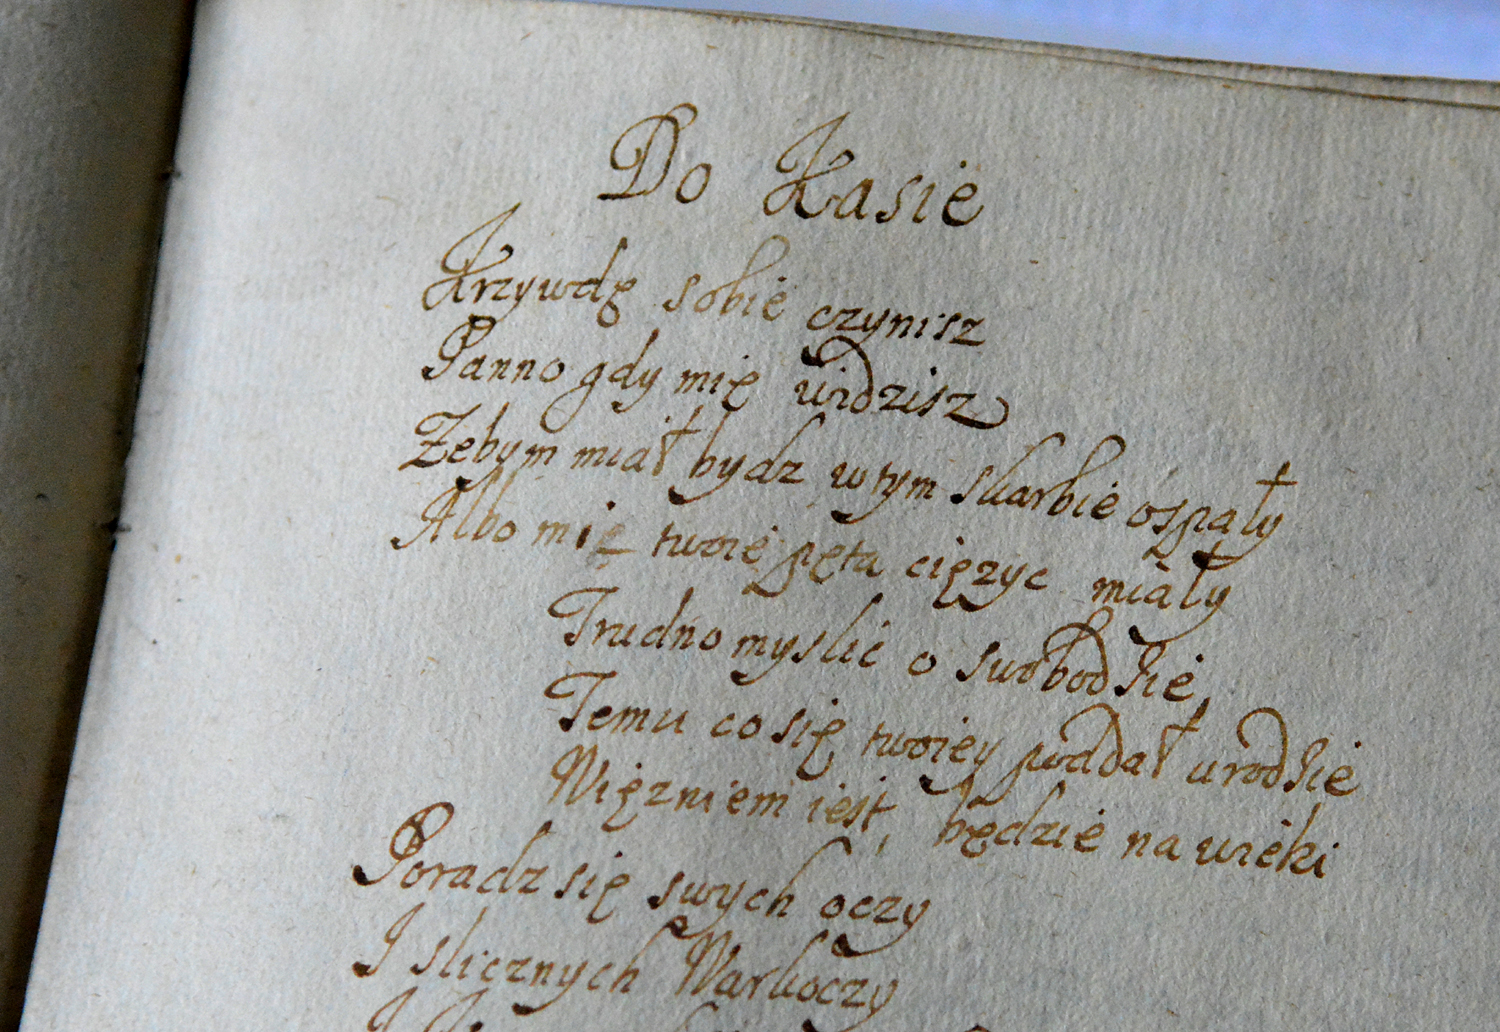 Do Kasie
Krzywdę sobie czynisz
Panno gdy mię widzisz
Zebym miał bydz w tym skarbie ospały
Albo mię twoie pęta cięzyc miały
Trudno myslic o swobodzie,
Temu co się twoiey poddał urodzie
Więzniem iest, będzie na wieki
Poradz się swych oczy
I slicznych Warkoczy